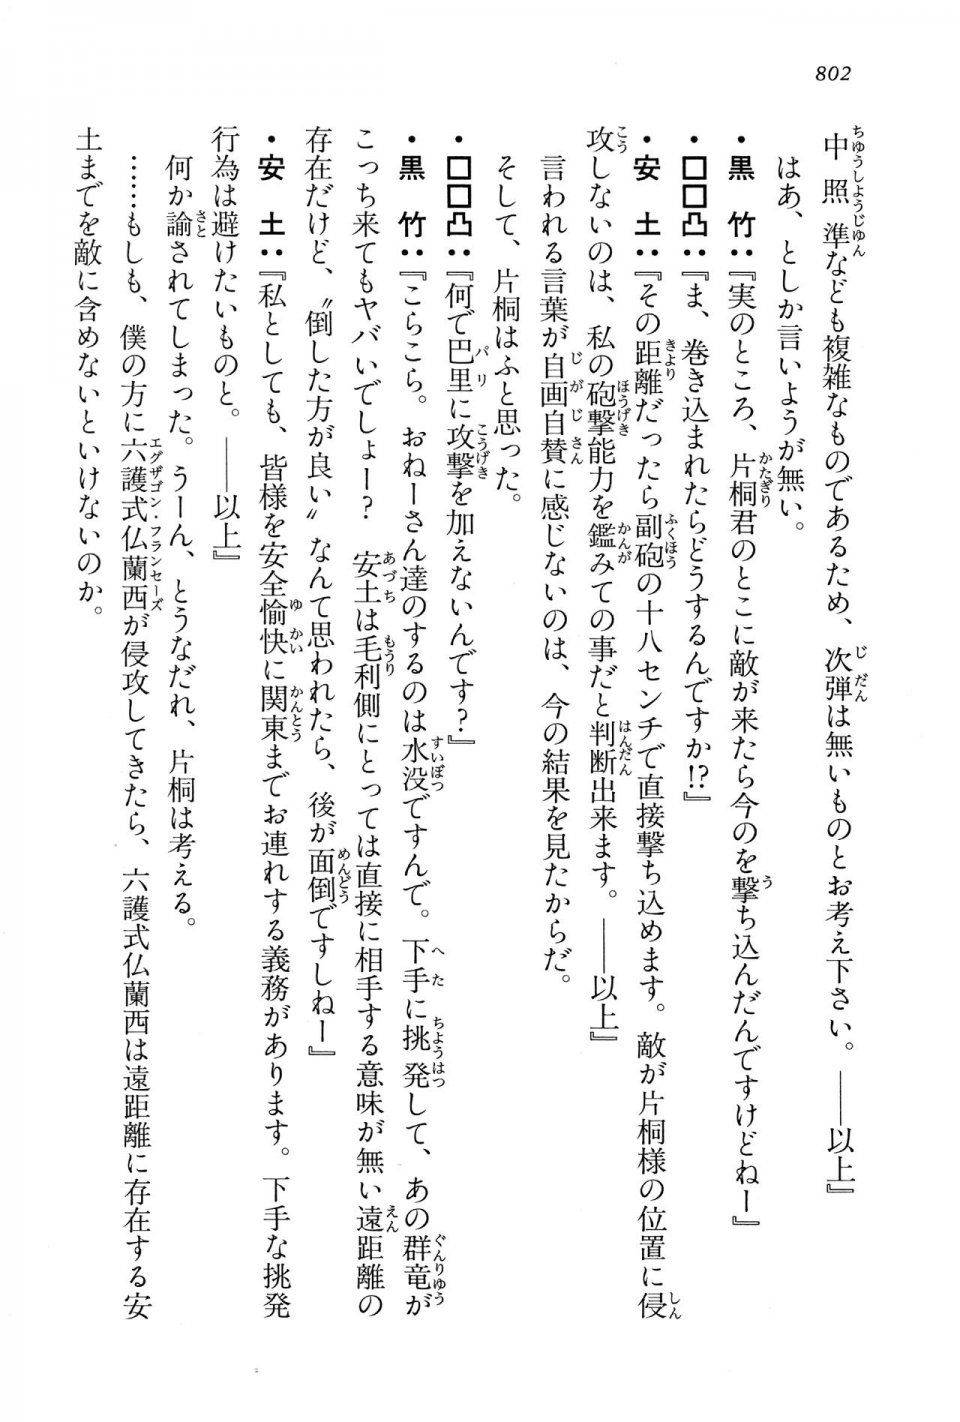 802
中照準なども複雑なものであるため、次弾は無いものとお考え下さい。――以上』
はあ、としか言いようが無い。
・黒　竹：『実のところ、片桐君のとこに敵が来たら今のを撃ち込んだんですけどねー』
・□□凸：『ま、巻き込まれたらどうするんですか!?』
・安　土：『その距離だったら副砲の十八センチで直接撃ち込めます。敵が片桐様の位置に侵
攻しないのは、私の砲撃能力を鑑みての事だと判断出来ます。――以上』
言われる言葉が自画自賛に感じないのは、今の結果を見たからだ。
そして、片桐はふと思った。
・□□凸：『何で巴里に攻撃を加えないんです？』
・黒　竹：『こらこら。おねーさん達のするのは水没ですんで。下手に挑発して、あの群竜が
こっち来てもヤバいでしょー？　安土は毛利側にとっては直接に相手する意味が無い遠距離の
存在だけど、〝倒した方が良い〟なんて思われたら、後が面倒ですしねー』
・安　土：『私としても、皆様を安全愉快に関東までお連れする義務があります。下手な挑発
行為は避けたいものと。――以上』
何か諭されてしまった。うーん、とうなだれ、片桐は考える。
……もしも、僕の方に六護式仏蘭西が侵攻してきたら、六護式仏蘭西は遠距離に存在する安
土までを敵に含めないといけないのか。